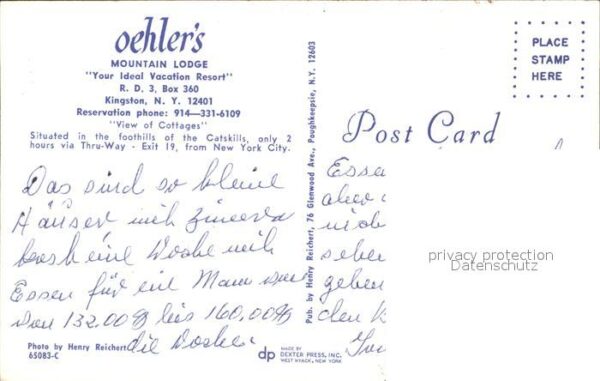 oehler's
MOUNTAIN LODGE
"Your Ideal Vacation Resort"
R. D. 3, Box 360
Kingston, N. Y. 12401
Reservation phone: 914-331-6109
"View of Cottages"
Situated in the foothills of the Catskills, only 2
hours via Thru-Way - Exit 19, from New York City.
Das sind so kleine
Häuser mit
eine Woche mit
Essen für ein Mann
von 132,00$ bis 160,00$
die Woche.
Photo by Henry Reichert
65083-C
Pub. by Henry Reichert, 76 Glenwood Ave., Poughkeepsie, N. Y. 12603
dp
MADE BY
DEXTER PRESS, INC.
WEST NYACK, NEW YORK
PLACE
STAMP
HERE
Post Card
Essen
aber
geben
den
privacy protection
Datenschutz